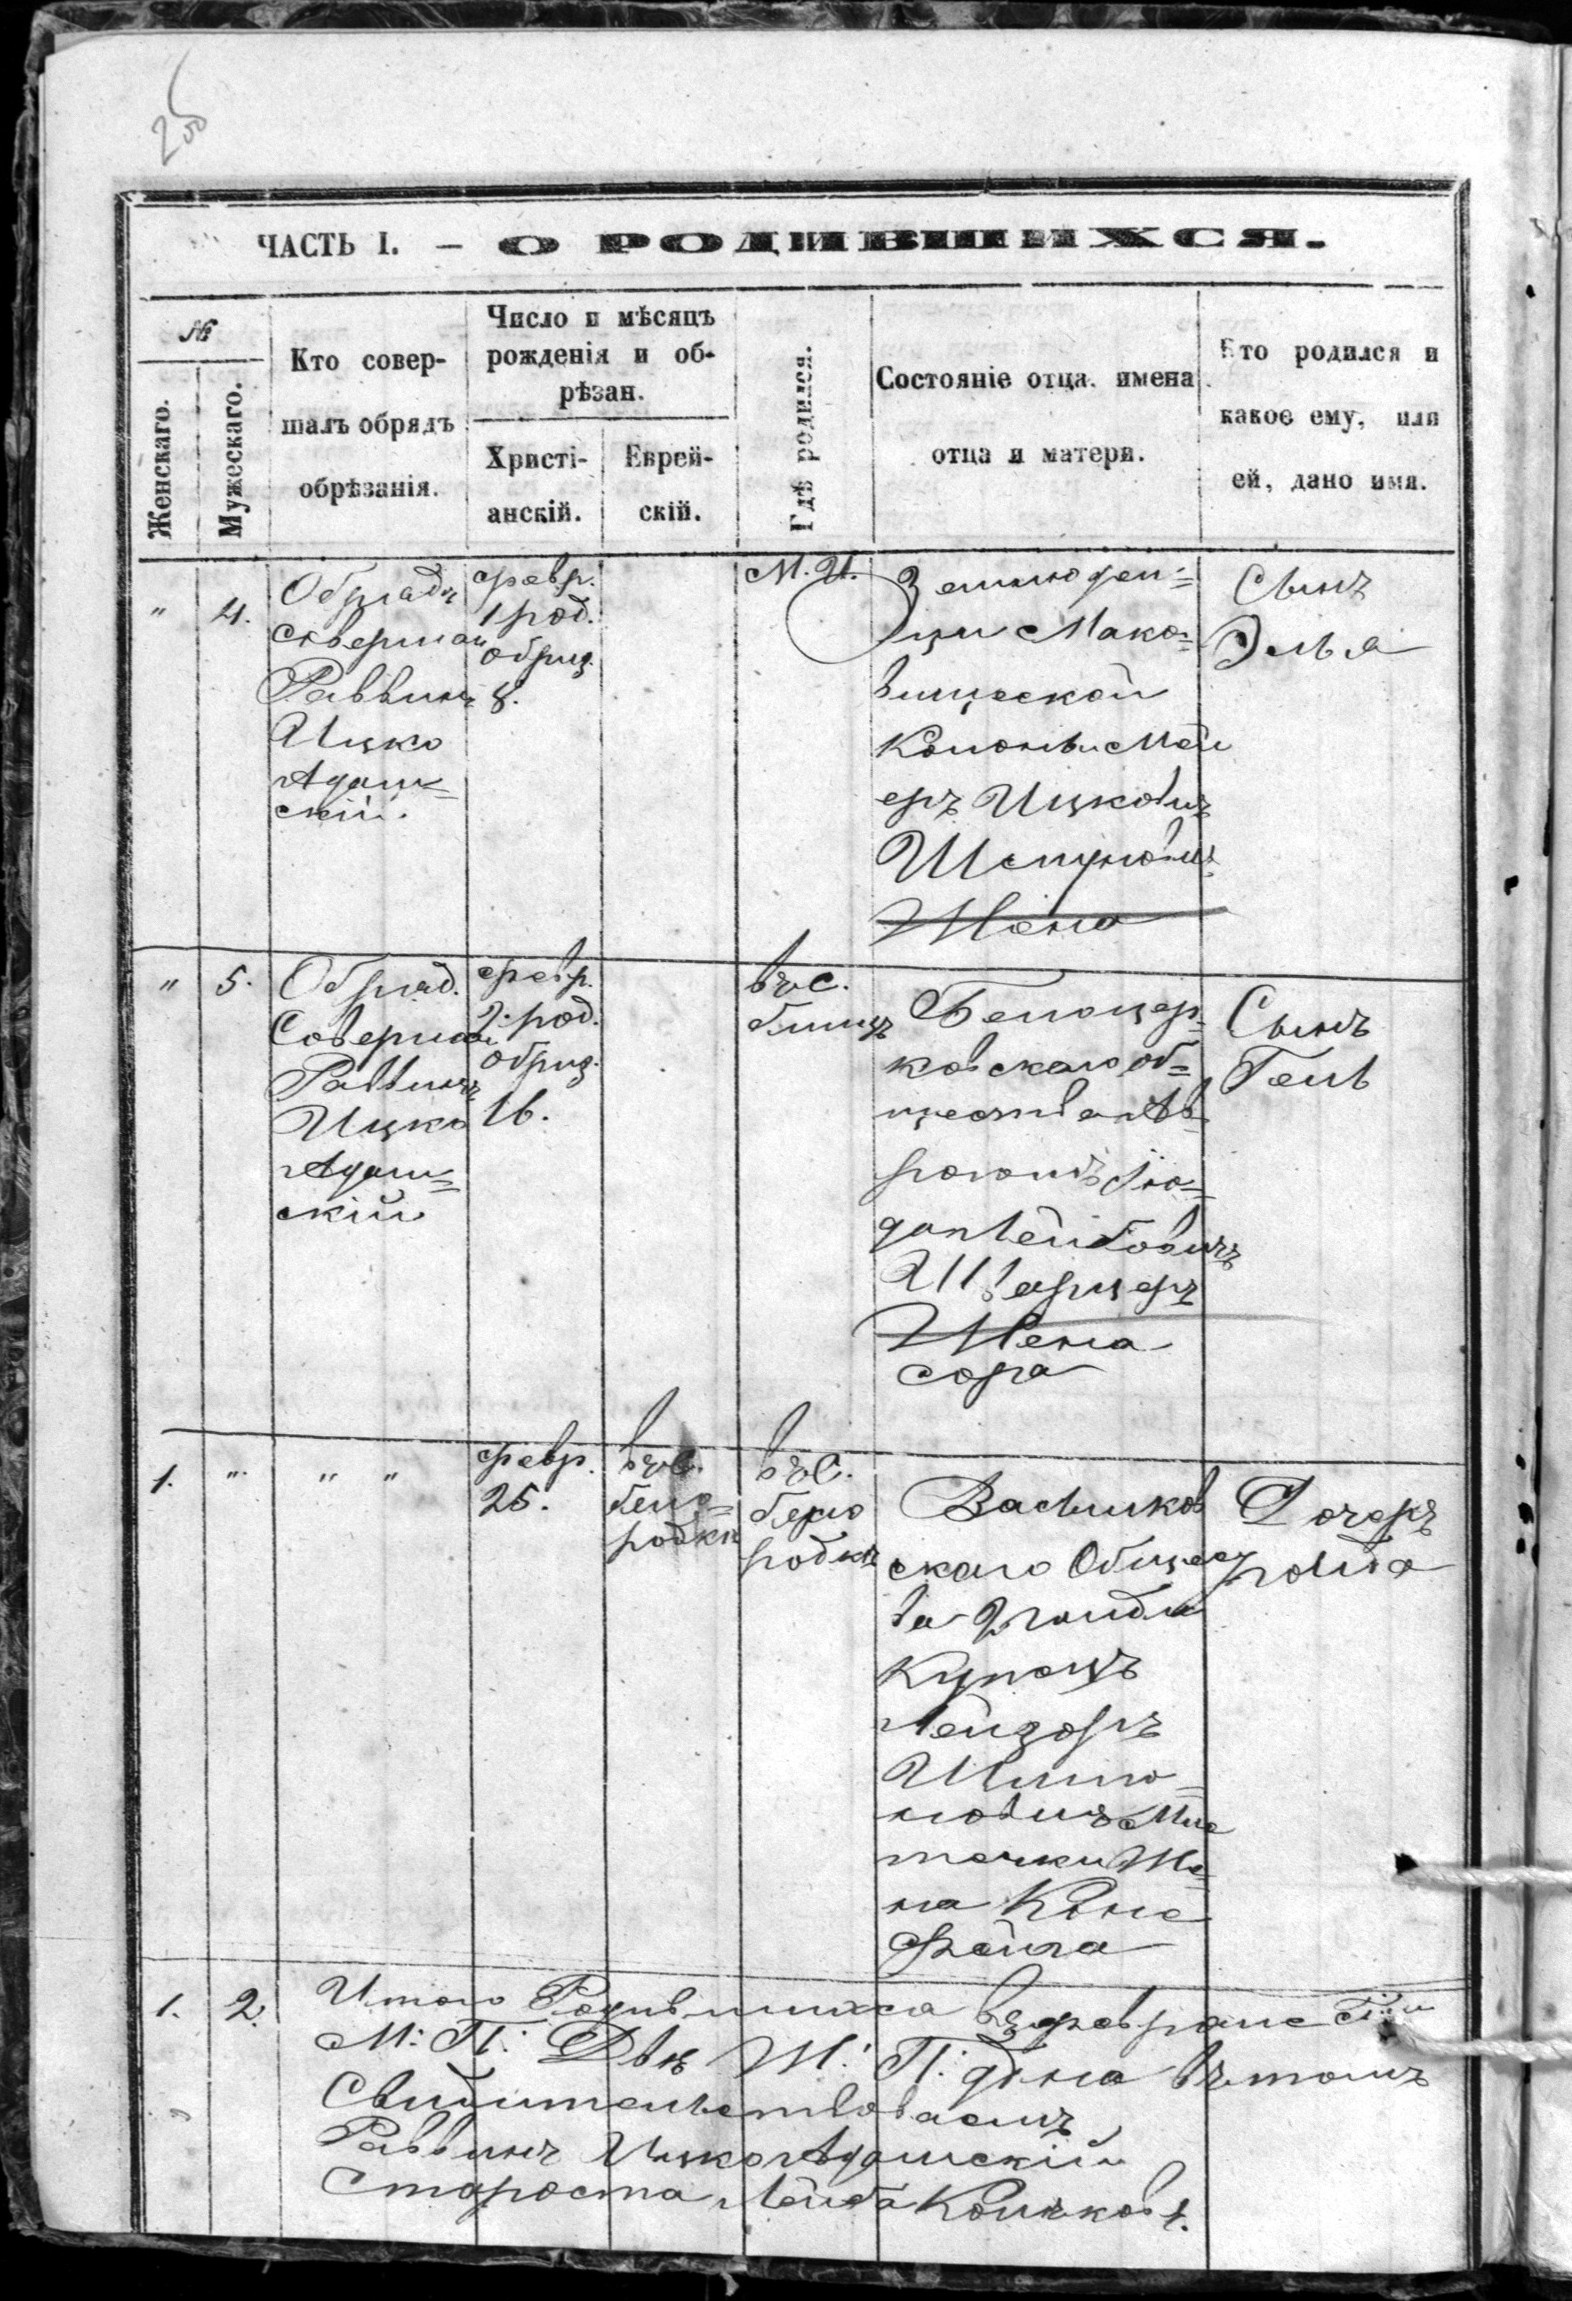 ЧАСТЬ I. — О РОДИВШИХСЯ.
№
Женскаго.
Мужескаго.
Кто совер-
шалъ обрядъ
обрѣзанія.
Число и мѣсяцъ
рожденія и об-
рѣзан.
Христі-
анскій.
Еврей-
скій.
Гдѣ родился.
Состояніе отца. имена
отца и матери.
Кто родился и
какое ему, или
ей, дано имя.
" 4.
Обрядъ
совершал
Раввинъ
Ицко
Адам=
скій.
февр.
1 род.
обриз.
8.
М. И.
Землюдел=
цы Мако=
вищеской
Колоніи Мей
еръ Ицковичъ
Жена
Сынъ
Элья
" 5.
Обряд.
Соверша
Раввинъ
Ицко
Адам=
скій
февр.
2. род.
обриз.
16.
въ С.
Белоцер-
ковскаго об=
щества Ав
рогомъ Ио=
Лейбовичъ
Шварцеръ
Жена
Сора
Сынъ
Гель
1. " " "
февр.
25.
въ С.
бело=
родки
въ С.
бело
родки
Васильков
скаго Общес
ва 2 гильди
Купецъ
Лейзоръ
Шлио-
мовичъ Мис
течки Же-
на Хона
Фейга
Дочеръ
ройза
1. 2.
Итого Родившихся въ феврале
М: П: Два Ж: П: Одна въ томъ
Свидительствоваемъ
Раввинъ Ицко Адамскій
Староста Лейба